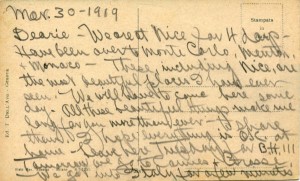 Mar. 30 - 1919
Stampata
Dearie - We are at Nice for 4 days -
Have been over to Monte Carlo, Menton,
& Monaco - These, including Nice, are
the most beautiful places I have ever
seen. We will have to come here some
day. All these beautiful things make me
long for you more than ever - Where
them. I hope everything is O.K. at
home - Leave here Tuesday for B.H. 111
Tomorrow go to Cannes & Grasse.
Italy for a few minutes